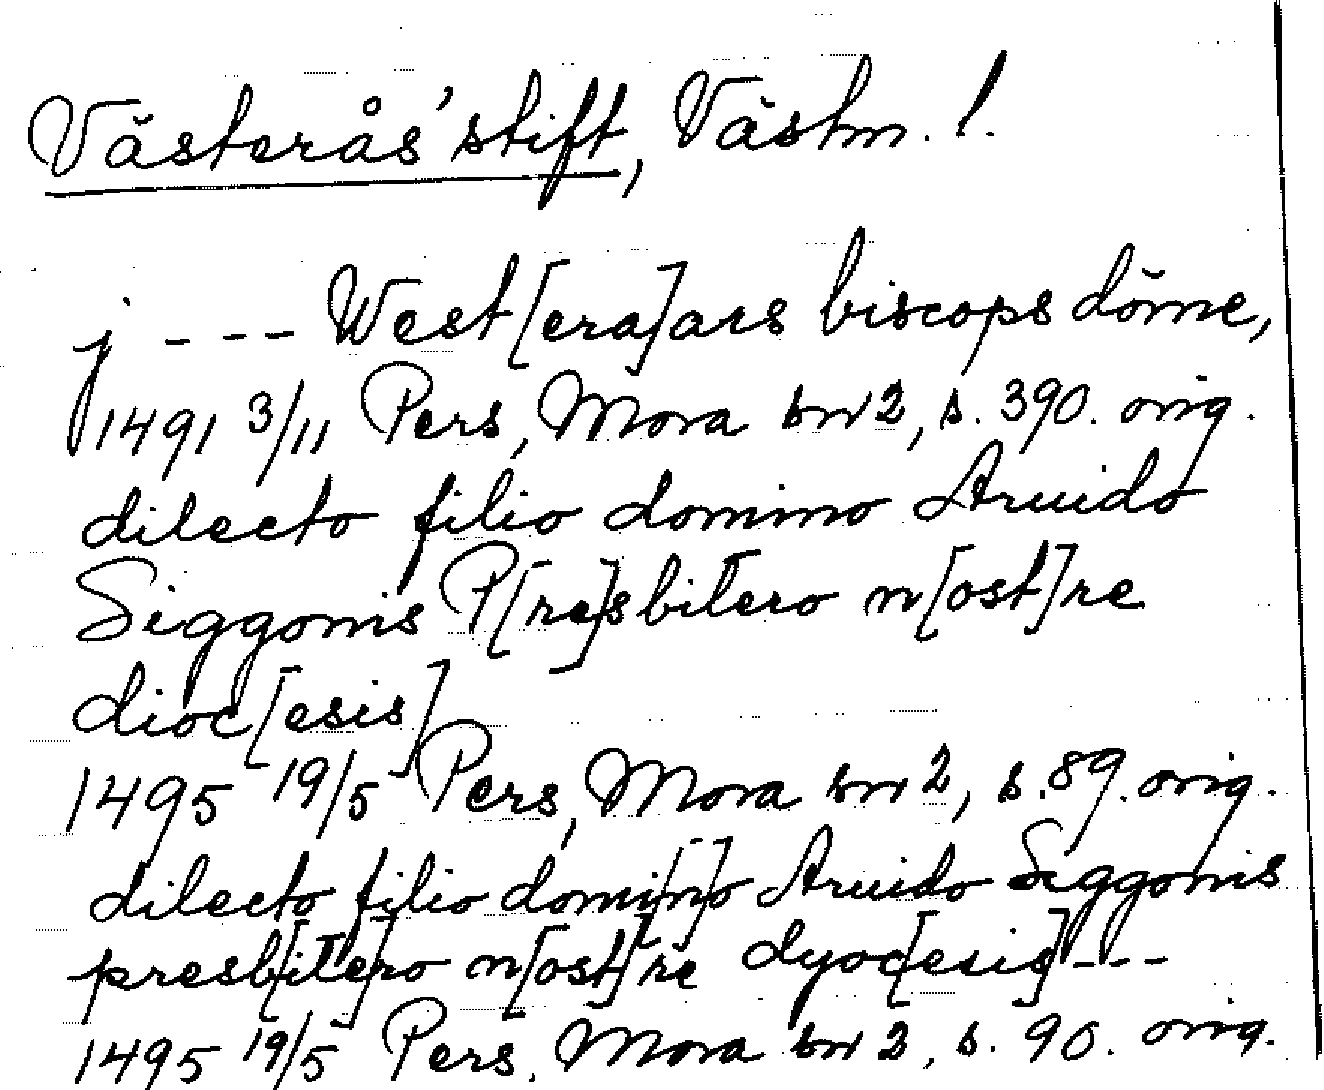 Västerås' stift, Västm. l.
j --- West[era]ars biscops döme,
1491 3/11 Pers, Mora bn 2, s. 390. orig.
dilecto filio domino Aruido
Siggonis P[re]sbitero n[ost]re
dioc[esis]
1495 19/5 Pers, Mora bn 2, s. 89. orig.
dilecto filio domi[n]o Aruido Siggonis
presb[ite]ro n[ost]re dyoc[esis] ---
1495 19/5 Pers, Mora bn 2, s. 90. orig.